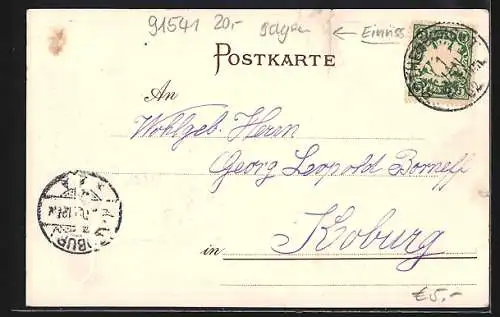 91541 20.- ← Einriss
POSTKARTE
An
Wohlgeb. Herrn
Georg Leopold Borneff
in Koburg
€5.-